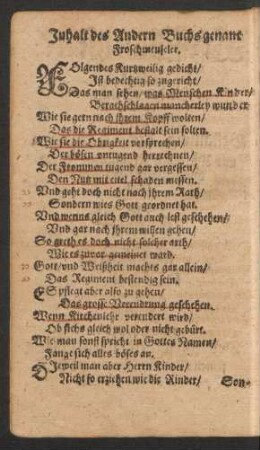 Inhalt des Andern Buchs genant
Froschmeuseler.
FOlgendes Kurtzweilig gedicht/
Ist bedechtig so zugericht/
Das man sehen/ was Menschen Kinder/
Berathschlagen mancherley wunder
Wie sie gern nach ihrem Kopff wolten/
Das die Regiment bestalt sein solten.
Wie sie die Obrigkeit versprechen/
Der bösen untugend herrechnen/
Der Frommen tugend gar vergessen/
Den Nutz mit eitel schaden messen.
Und geht doch nicht nach ihrem Rath/
Sondern wies Gott geordnet hat.
Und wenns gleich Gott auch lest geschehen/
Und gar nach ihrem willen gehen/
So greth es doch nicht solcher arth/
Wie es zuvor gemeinet ward.
Gott/ und Weisheit machts gar allein/
Das Regiment bestendig sein.
ES pflegt aber also zu gehen/
Das grosse Verendrung geschehen.
Wenn Kirchenlehr verendert wird/
Ob sichs gleich wol oder nicht gebürt.
Wie man sonst spricht in Gottes Namen/
Fange sich alles böses an.
DIeweil man aber Herrn Kinder/
Nicht so erziehen wie die Rinder/
Son-